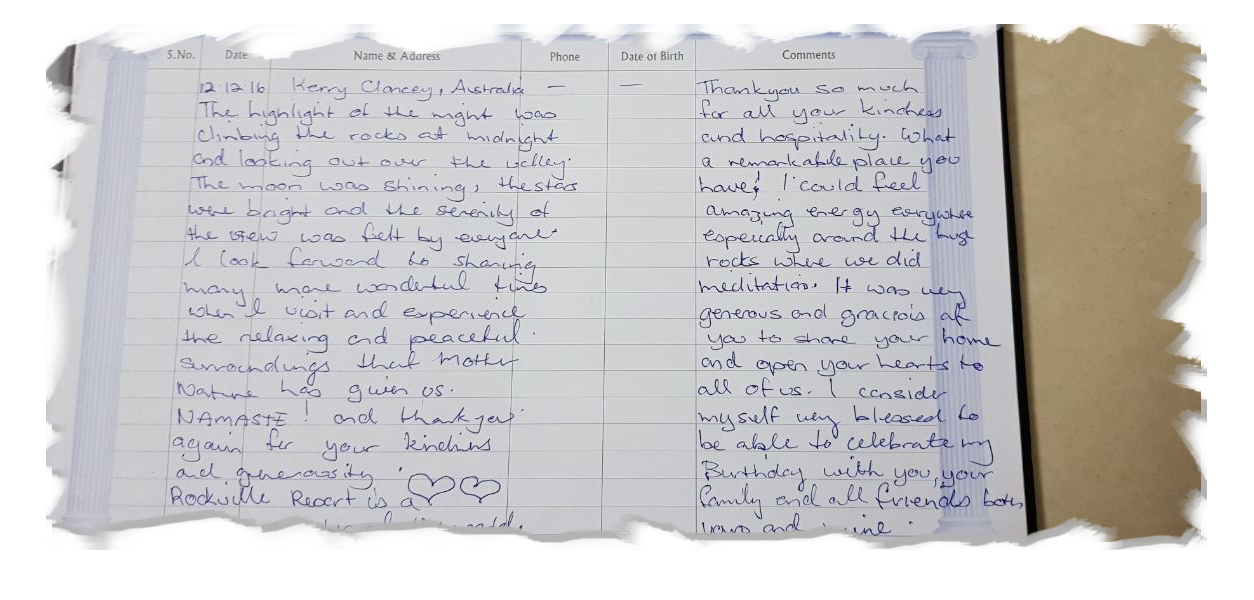 S.No. Date Name & Address Phone Date of Birth Comments
12.12.16 Kerry Clancey, Australia — —
Thankyou so much
for all your kindness
and hospitality. What
a remarkable place you
have! I could feel
amazing energy everywhere
especially around the huge
rocks where we did
meditation. It was very
generous and gracious of
you to share your home
and open your hearts to
all of us. I consider
myself very blessed to
be able to celebrate my
Birthday with you, your
family and all friends both
and
The highlight of the night was
climbing the rocks at midnight
and looking out over the valley.
The moon was shining, the stars
were bright and the serenity of
the view was felt by everyone.
I look forward to sharing
many more wonderful times
when I visit and experience
the relaxing and peaceful
surroundings that Mother
Nature has given us.
NAMASTE! and thankyou
again for your kindness
and generosity.
Rockville Resort is a